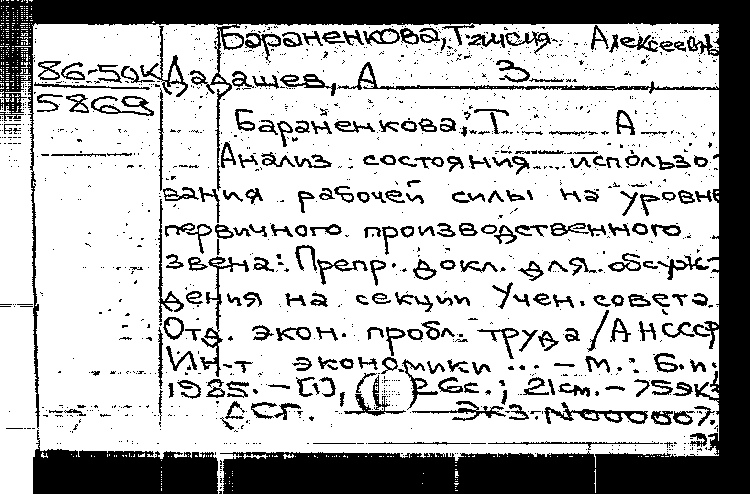 Бараненкова, Таисия Алексеевна
86-50к Дадашев, А З ,
5869
Бараненкова, Т А
Анализ состояния использо-
вания рабочей силы на уровне
первичного производственного
звена: Препр. докл. для обсуж-
дения на секции Учен. совета
Отд. экон. пробл. труда / АН СССР
Ин-т экономики ... - М.: Б.и.,
1985. - [1], 26с.; 21см. - 75экз
ДСП. Экз. N000007.